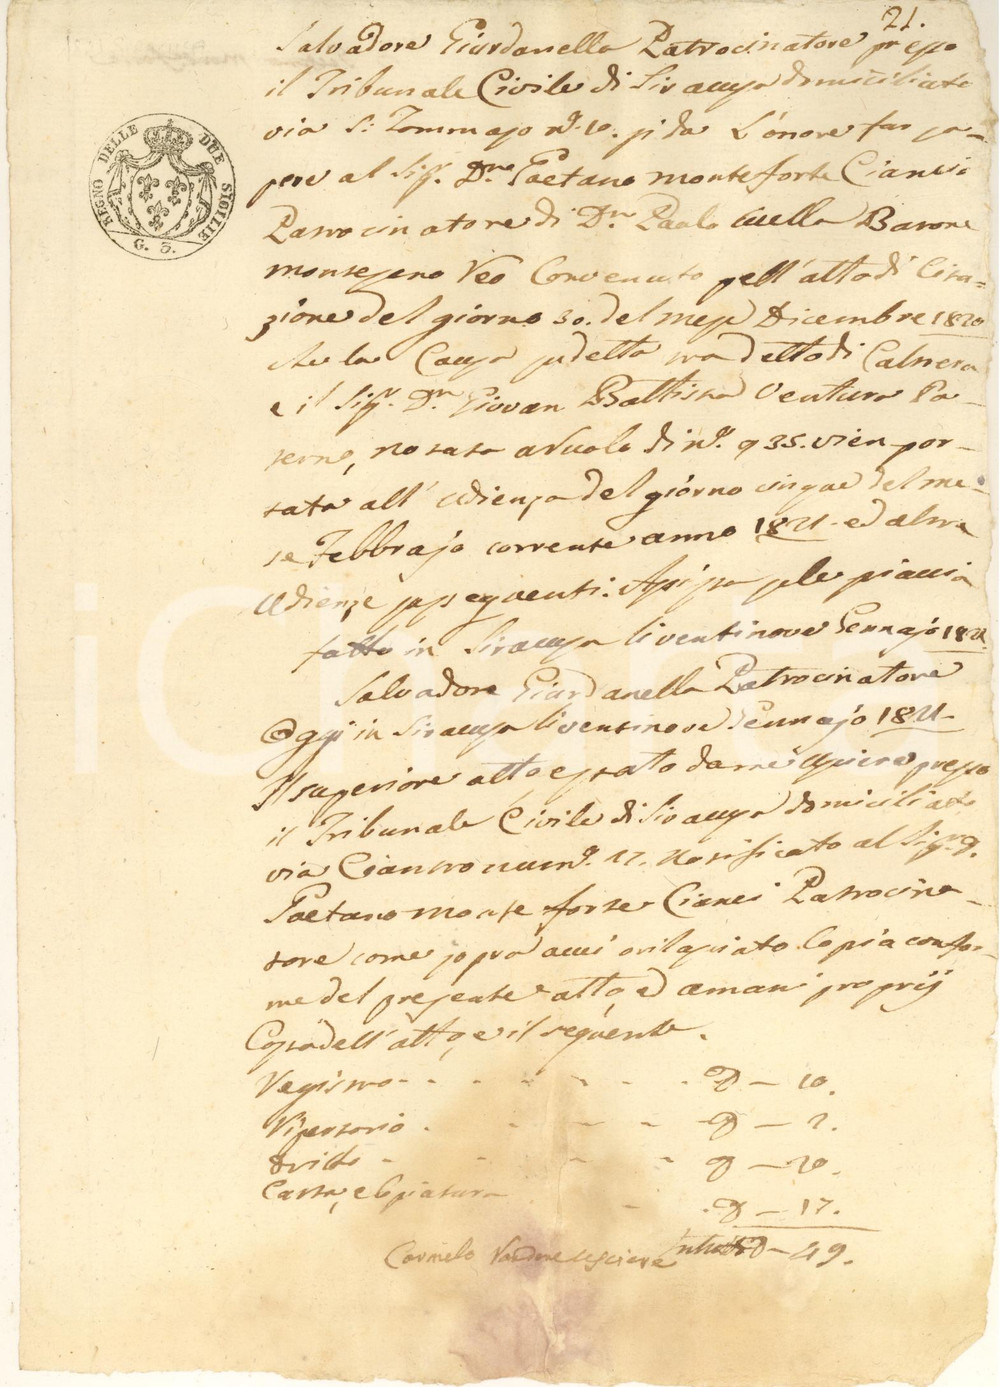 21.
Salvadore Giurdanella Patrocinatore presso
il Tribunale Civile di Siracusa domiciliato
via S: Tommaso n.º 10. si da L'onore far sa=
pere al Sigr. Dn. Gaetano Monteforte Cianci
Patrocinatore di Dn. Paolo Barone
Reo Convenuto nell'atto di Cita=
zione del giorno 30. del mese Dicembre 1820
che la Causa sudetta tra detto di
e il Sigr. Dn. Giovan Battista Ventura Pa=
terno, notata a Ruolo di n.º 935. vien por=
tata all' Udienza del giorno cinque del me=
se Febbrajo corrente anno 1821. ed altre
Udienze susseguenti:
fatto in Siracusa li ventinove Gennajo 1821
Salvadore Giurdanella Patrocinatore
Oggi in Siracusa li ventinove Gennajo 1821.
Il superiore atto è stato da me Usciere presso
il Tribunale Civile di Siracusa domiciliato
via num.º 17. Notificato al Sigr. D.
Gaetano Monteforte Cianci Patrocina=
tore come sopra cui ò rilasciato Copia confor=
me del presente atto, ed a mani proprij
Copia dell'atto, e il seguente.
Registro - - - - - - - D - 10.
Ripertorio - - - - D - 2.
Dritto - - - - D - 20.
Carta, e Copiatura - . D - 17.
Carmelo usciere D - 49.
REGNO DELLE DUE SICILIE
G. 3.